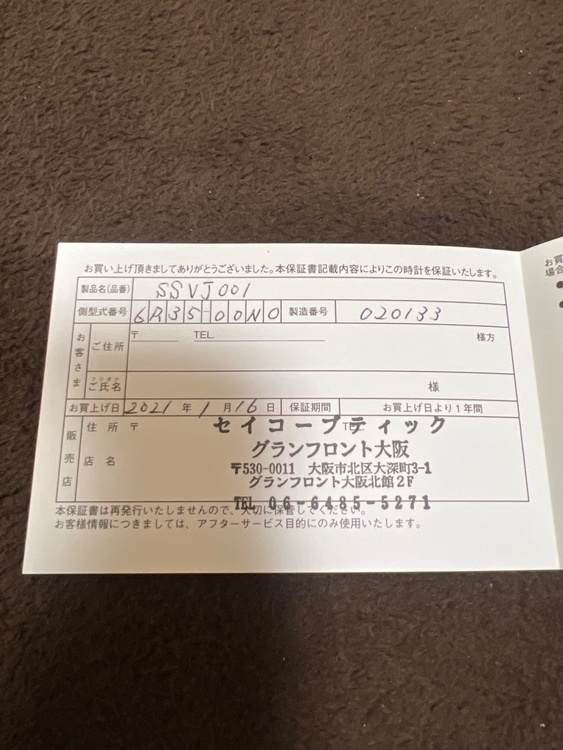 お買い上げ頂きましてありがとうございました。本保証書記載内容によりこの時計を保証いたします。
製品名(品番) SSVJ001
側型式番号 6R35-00N0 製造番号 020133
お客さま ご住所 〒 TEL. 様方
フリガナ
ご氏名 様
お買上げ日 2021 年 1 月 16 日 保証期間 お買上げ日より1年間
販売店 住所 〒 TEL
店名
セイコーブティック
グランフロント大阪
〒530-0011 大阪市北区大深町3-1
グランフロント大阪北館2F
TEL 06-6485-5271
本保証書は再発行いたしませんので、大切に保管してください。
お客様情報につきましては、アフターサービス目的にのみ使用いたします。
お買
場合